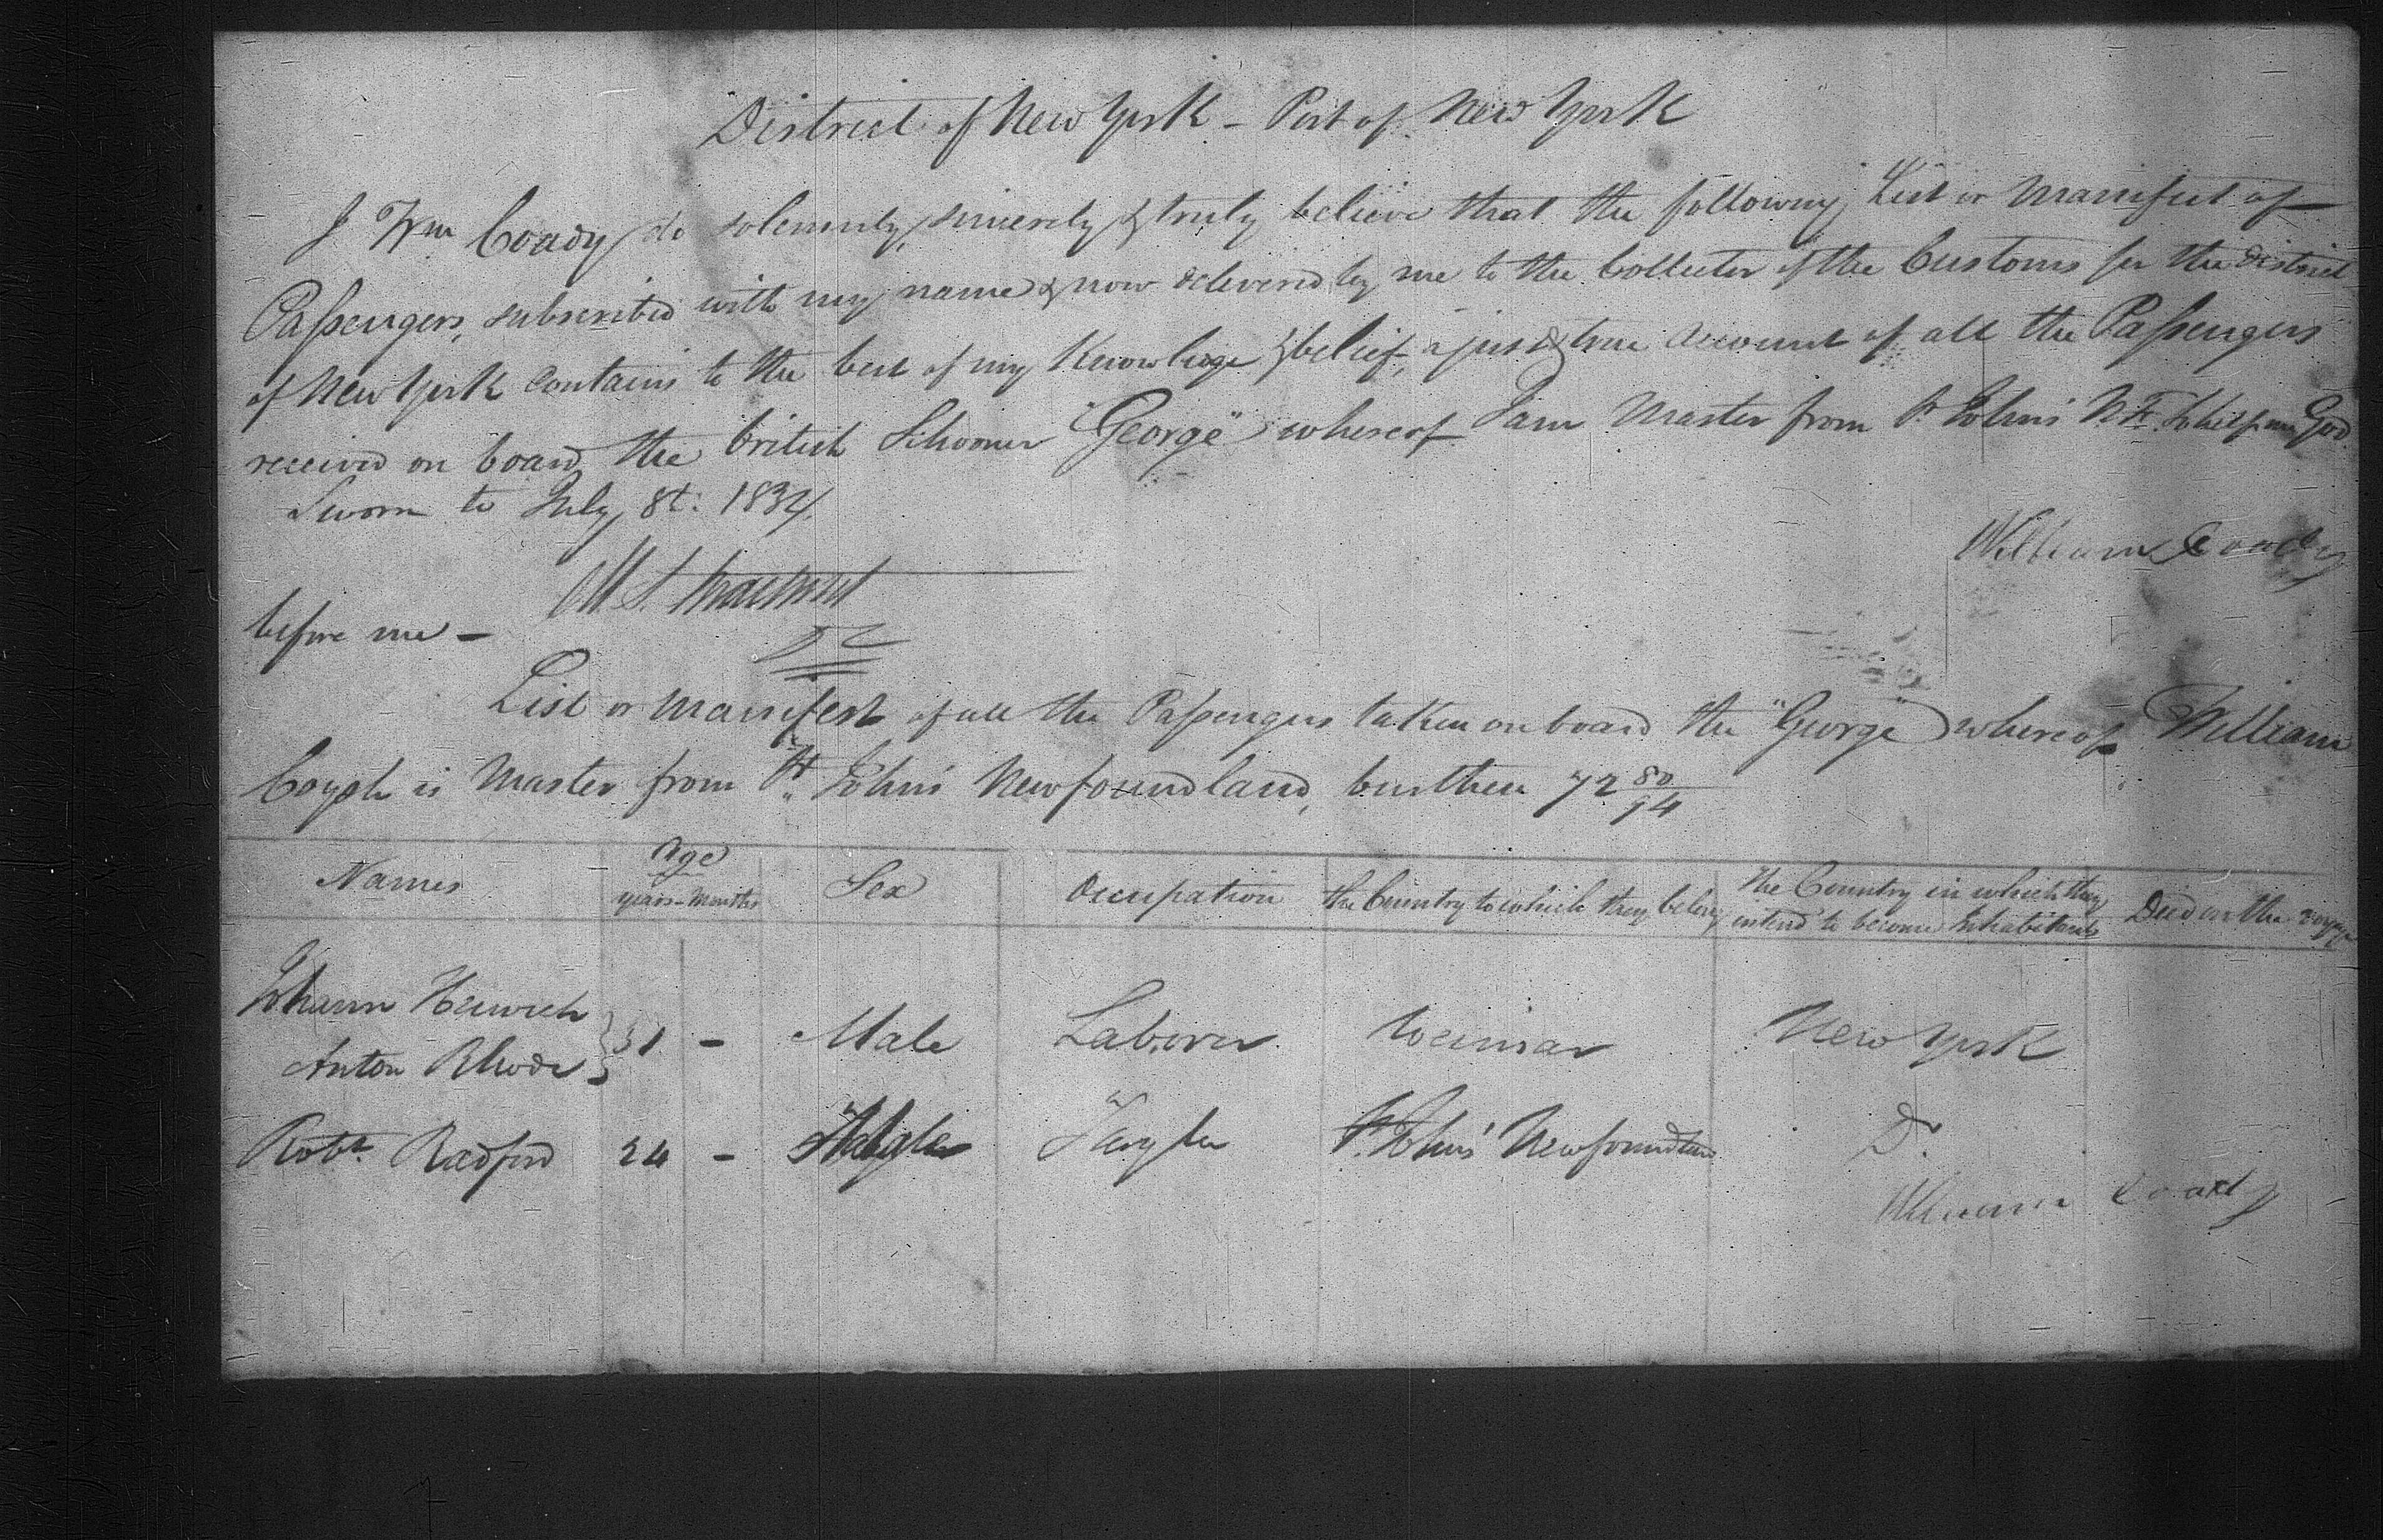 District of New York - Port of New York
I Wm Coady do solemnly, sincerely & truly believe that the following List or Manifest of
Passengers, subscribed with my name & now delivered by me to the Collector of the Customs for the district
of New York contains to the best of my Knowledge & belief, a just & true account of all the Passengers
received on board the British Schooner "George" whereof I am Master from St. John's N.F. So help me God.
Sworn to July 8t: 1834.
William Coady
before me -
List or Manifest of all the Passengers taken on board the "George" whereof William
is Master from St. John's Newfoundland, burthen 72 80/94
Names Age years - months Sex Occupation the Country to which they belong the Country in which they intend to become Inhabitants Died on the voyage
Johann Heinrich
Anton Rhode } 31 - Male Laborer Weimar New York
Robt. Radford 24 - St. John's Newfoundland Do.
William Coady